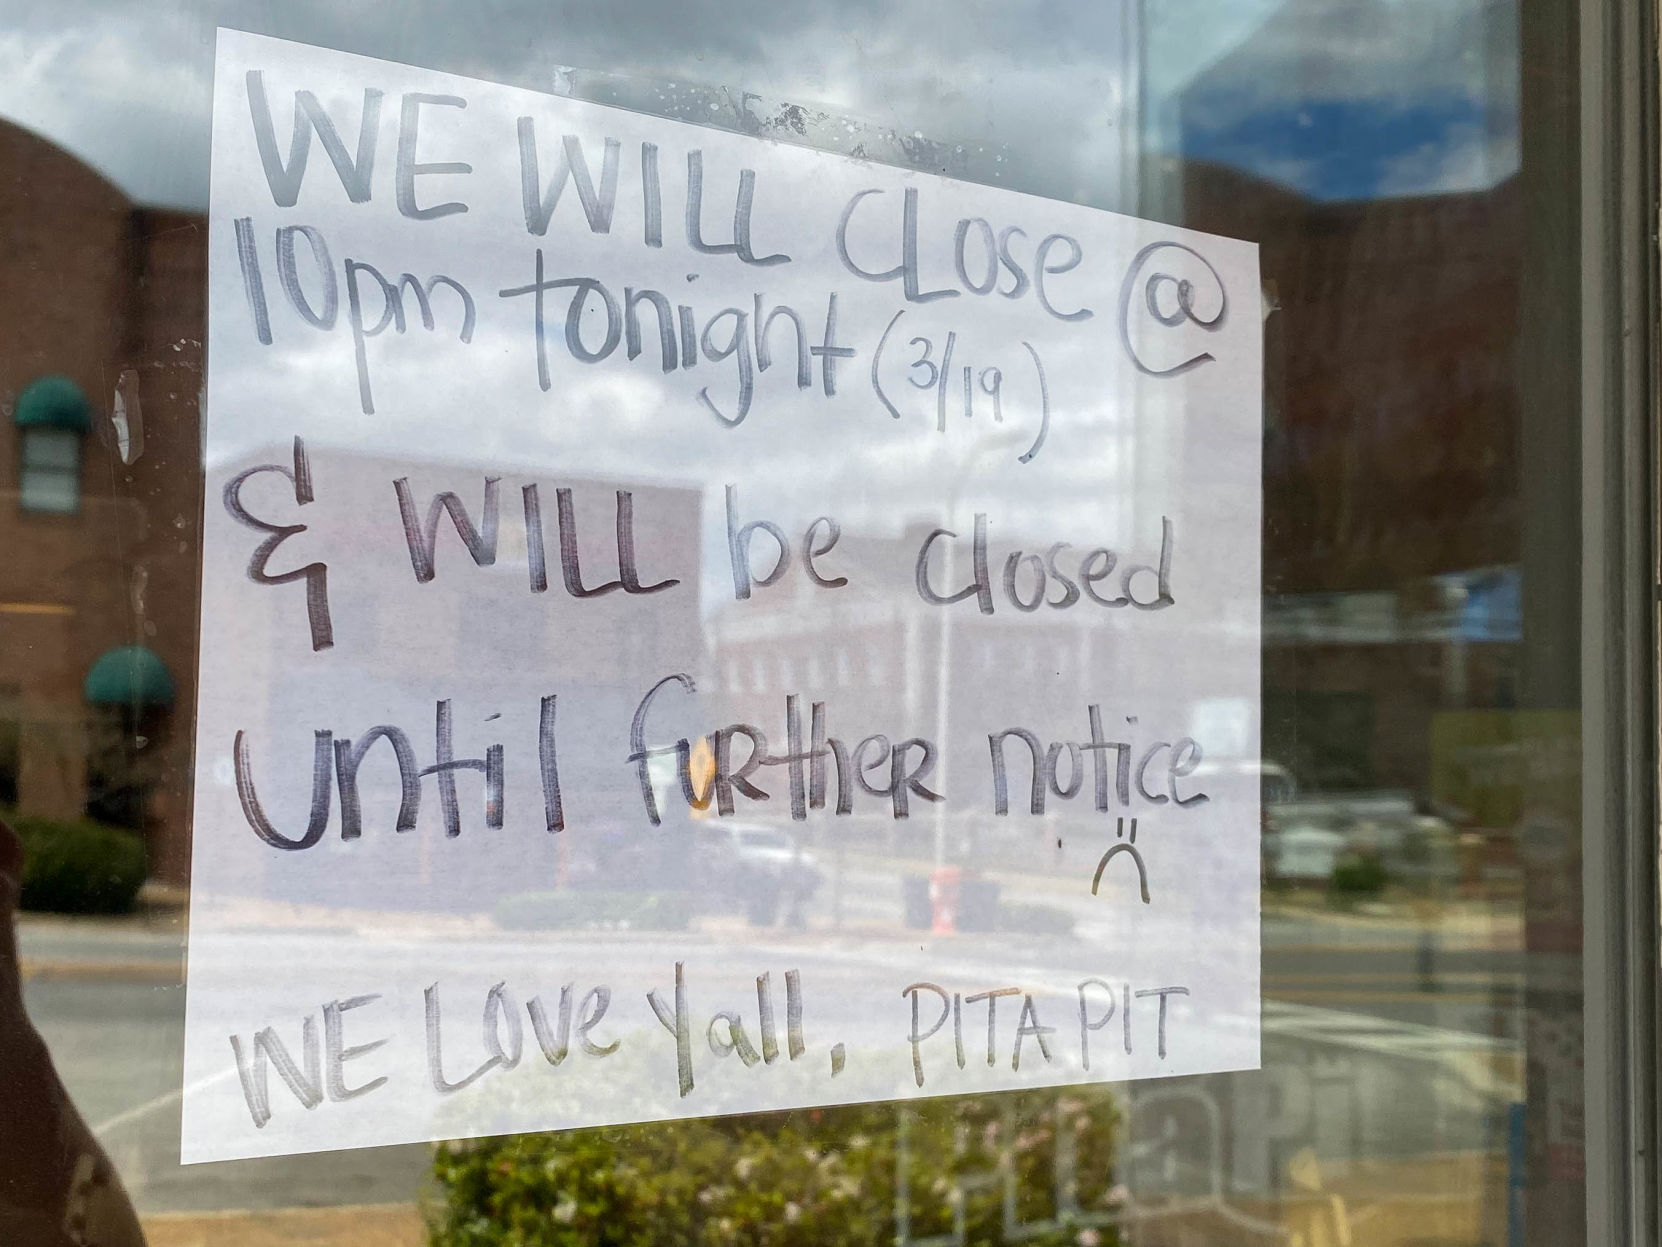 WE WILL CLOSE @
10pm tonight (3/19)
& WILL be closed
until further notice
:(
WE LOVE Yall, PITA PIT
PITA PIT